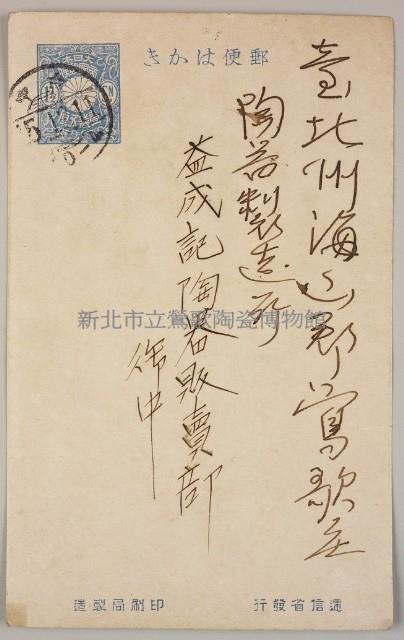 郵便はかき
臺北州海山郡鶯歌庄
陶器製造所
益成記陶器販賣部
御中
新北市立鶯歌陶瓷博物館
遞信省發行
印刷局製造